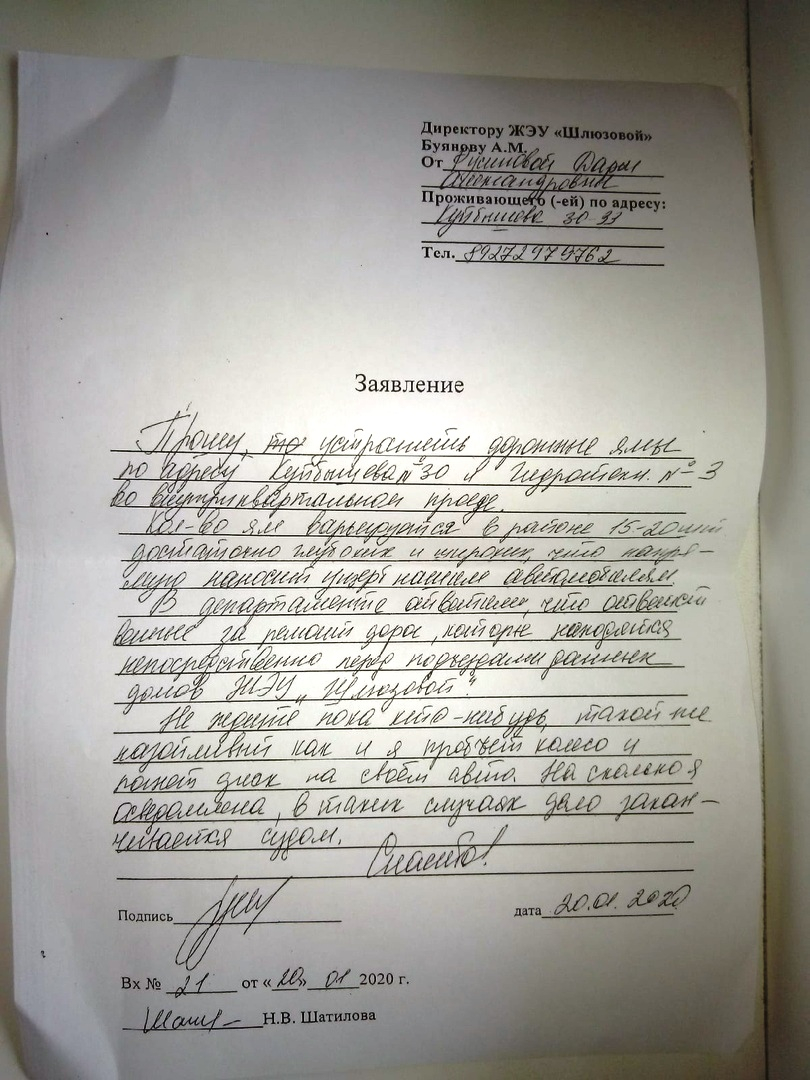 Директору ЖЭУ «Шлюзовой»
Буянову А.М.
От Фусиновой Дарьи
Александровны
Проживающего (-ей) по адресу:
Куйбышева 30-33
Тел. 89272979762
Заявление
Прошу, устранить дорожные ямы
по адресу Куйбышева №30 и Гидротехн. №3
во внутриквартальном проезде.
Кол-во ям варьируется в районе 15-20 шт
достаточно глубоких и широких, что напря-
мую наносит ущерб нашим автомобилям.
В департаменте ответили, что ответст
венные за ремонт дорог, которые находятся
непосредственно перед подъездами данных
домов ЖЭУ „Шлюзовой".
Не ждите пока кто-нибудь, такой же
назойливый как и я пробьёт колесо и
погнёт диск на своём авто. На сколько я
осведомлена, в таких случаях дело закан-
чивается судом.
Спасибо!
Подпись
дата 20.01.2020
Вх № 21 от «20» 01 2020 г.
Н.В. Шатилова